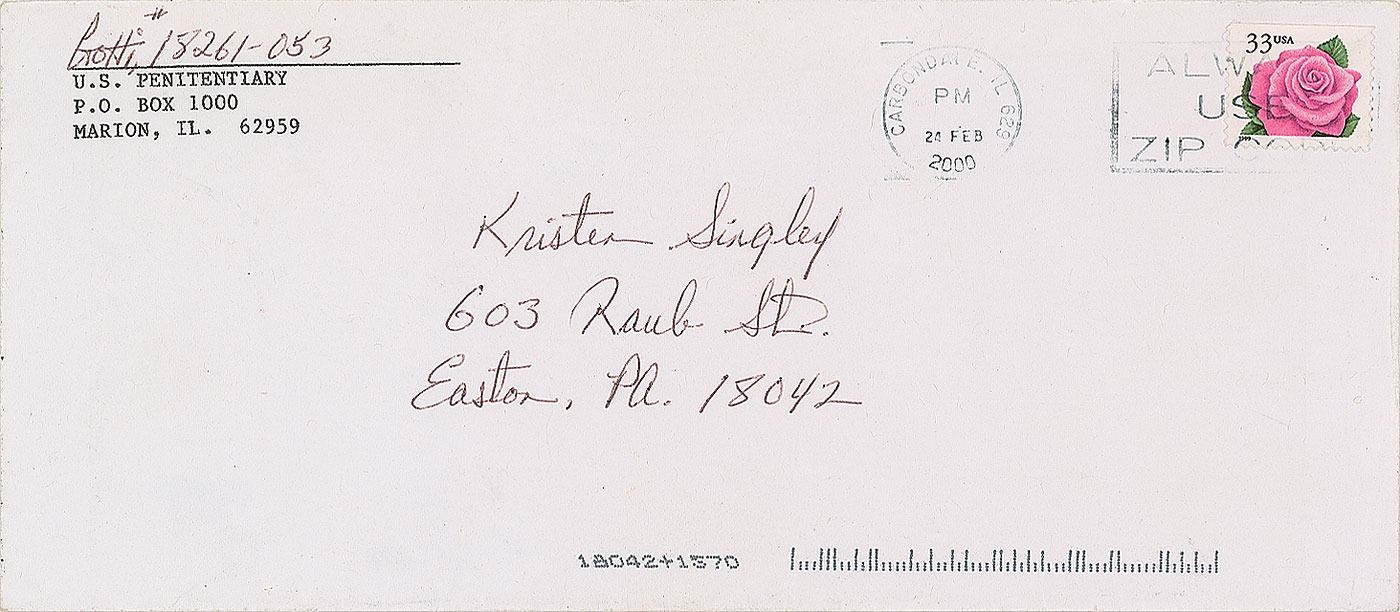 Gotti, # 18261-053
U.S. PENITENTIARY
P.O. BOX 1000
MARION, IL. 62959
CARBONDALE, IL 629
PM
24 FEB
2000
ALWA
USE
ZIP CO
33 USA
Kristen Singley
603 Raub St.
Easton, PA. 18042
18042+1570